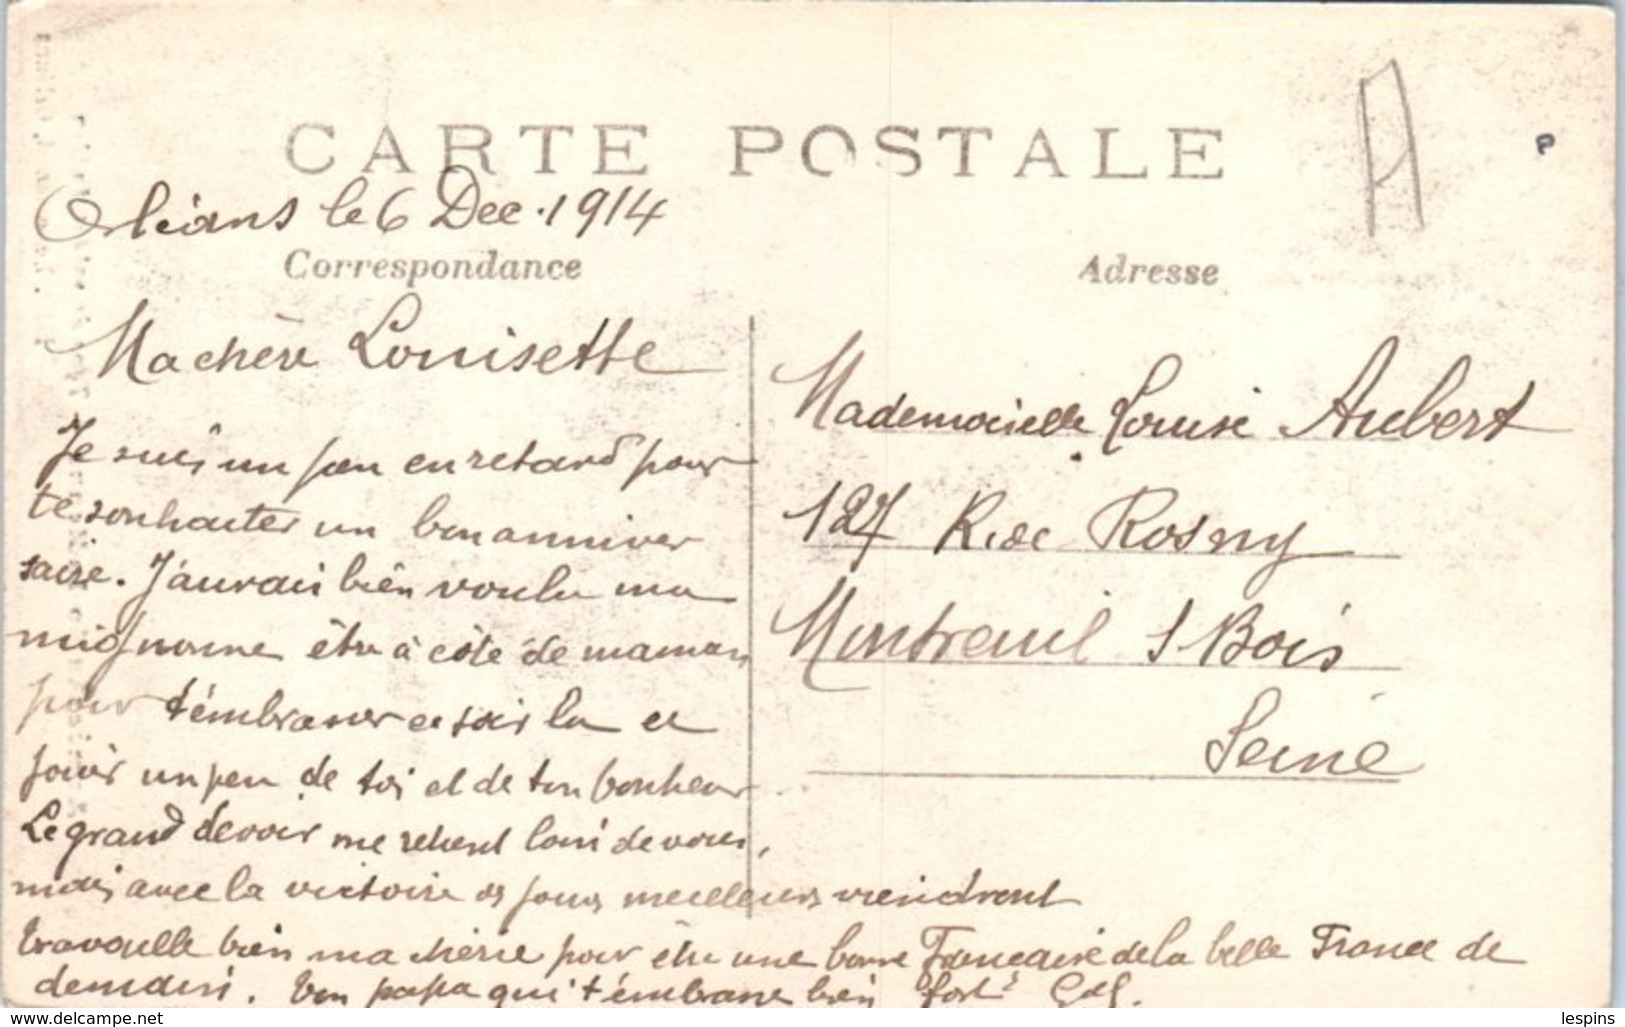 CARTE POSTALE
Orléans le 6 Dec. 1914
Correspondance
Ma chère Louisette
Je suis un peu en retard pour
te souhaiter un bon anniver
saire. J'aurais bien voulu ma
mignonne être à côté de maman
pour t'embrasser ce soir la et
jouir un peu de toi et de ton bonheur
Le grand devoir me retient loin de vous,
mais avec la victoire des jours meilleurs viendront
travaille bien ma chérie pour être une bonne Française de la belle France de
demain. Ton papa qui t'embrasse bien fort
Adresse
Mademoiselle Louise Aubert
127 Rue Rosny
Montreuil s Bois
Seine
P
www.delcampe.net
lespins